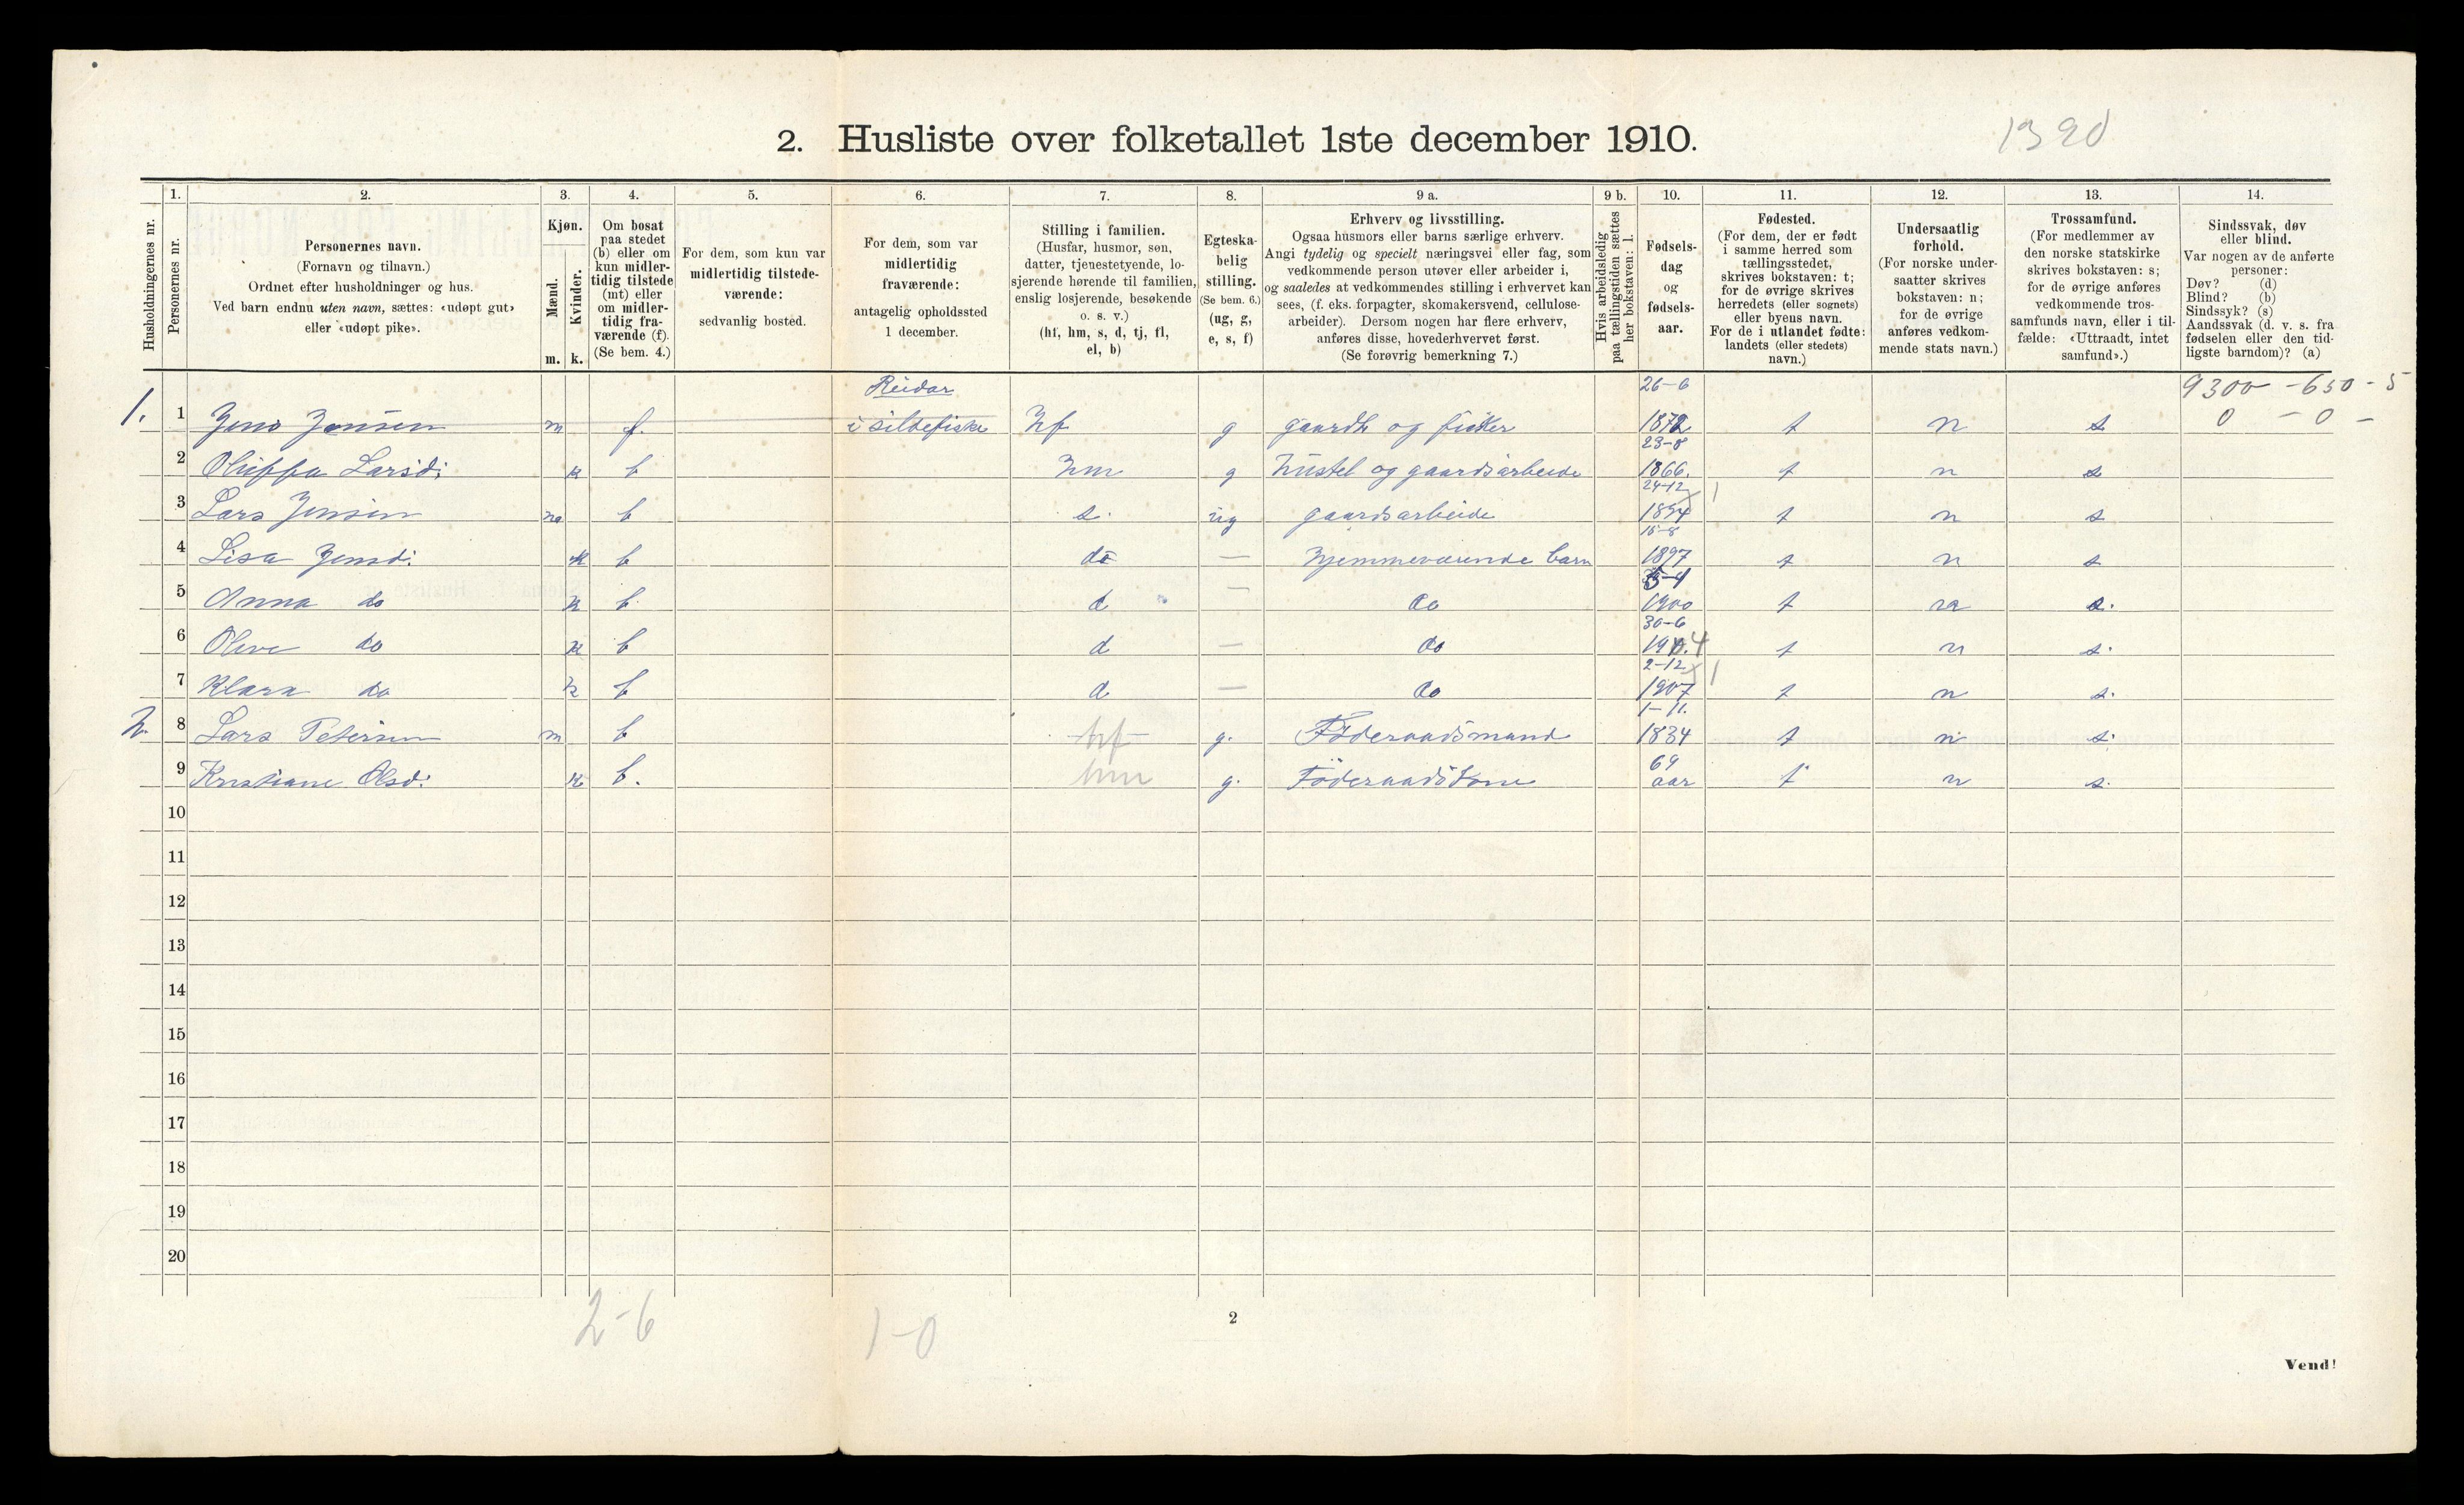 2. Husliste over folketallet 1ste december 1910.
1390
1. 2. 3. 4. 5. 6. 7. 8. 9 a. 9 b. 10. 11. 12. 13. 14.
Husholdningernes nr.
Personernes nr.
Personernes navn.
(Fornavn og tilnavn.)
Ordnet efter husholdninger og hus.
Ved barn endnu uten navn, sættes: «udøpt gut»
eller «udøpt pike».
Kjøn.
Mænd.
Kvinder.
m. k.
Om bosat
paa stedet
(b) eller om
kun midler-
tidig tilstede
(mt) eller
om midler-
tidig fra-
værende (f).
(Se bem. 4.)
For dem, som kun var
midlertidig tilstede-
værende:
sedvanlig bosted.
For dem, som var
midlertidig
fraværende:
antagelig opholdssted
1 december.
Stilling i familien.
(Husfar, husmor, søn,
datter, tjenestetyende, lo-
sjerende hørende til familien,
enslig losjerende, besøkende
o. s. v.)
(hf, hm, s, d, tj, fl,
el, b)
Egteska-
belig
stilling.
(Se bem. 6.)
(ug, g,
e, s, f)
Erhverv og livsstilling.
Ogsaa husmors eller barns særlige erhverv.
Angi tydelig og specielt næringsvei eller fag, som
vedkommende person utøver eller arbeider i,
og saaledes at vedkommendes stilling i erhvervet kan
sees, (f. eks. forpagter, skomakersvend, cellulose-
arbeider). Dersom nogen har flere erhverv,
anføres disse, hovederhvervet først.
(Se forøvrig bemerkning 7.)
Hvis arbeidsledig
paa tællingstiden sættes
her bokstaven: l.
Fødsels-
dag
og
fødsels-
aar.
Fødested.
(For dem, der er født
i samme herred som
tællingsstedet,
skrives bokstaven: t;
for de øvrige skrives
herredets (eller sognets)
eller byens navn.
For de i utlandet fødte:
landets (eller stedets)
navn.)
Undersaatlig
forhold.
(For norske under-
saatter skrives
bokstaven: n;
for de øvrige
anføres vedkom-
mende stats navn.)
Trossamfund.
(For medlemmer av
den norske statskirke
skrives bokstaven: s;
for de øvrige anføres
vedkommende tros-
samfunds navn, eller i til-
fælde: «Uttraadt, intet
samfund».)
Sindssvak, døv
eller blind.
Var nogen av de anførte
personer:
Døv? (d)
Blind? (b)
Sindssyk? (s)
Aandssvak (d. v. s. fra
fødselen eller den tid-
ligste barndom)? (a)
Reidar 26-6 9300 - 650 - 5
1. 1 Jens Jensen m f. i sildefiske hf g gaardb og fisker 1872 t n s 0 - 0 -
23-8
2 Oluffa Larsd: k b hm g hustel og gaardsarbeide 1866. t n s
24-12 1
3 Lars Jensen m b s. ug gaardsarbeide 1894 t n s
15-8
4 Lisa Jensd: k b d — hjemmeværende barn 1897 t n s
5-4
5 Anna do k b. d — do 1900 t n s.
30-6
6 Olive do k b d — do 190.4 t n s.
2-12 1
7 Klara do k b d — do 1907 t n s.
1-11.
2. 8 Lars Petersen m b hf g. Föderaadsmand 1834 t n s.
69
9 Kristiane Olsd: k b. hm g. Föderaadskone aar t n s.
10
11
12
13
14
15
16
17
18
19
20
2-6 1-0
2
Vend!